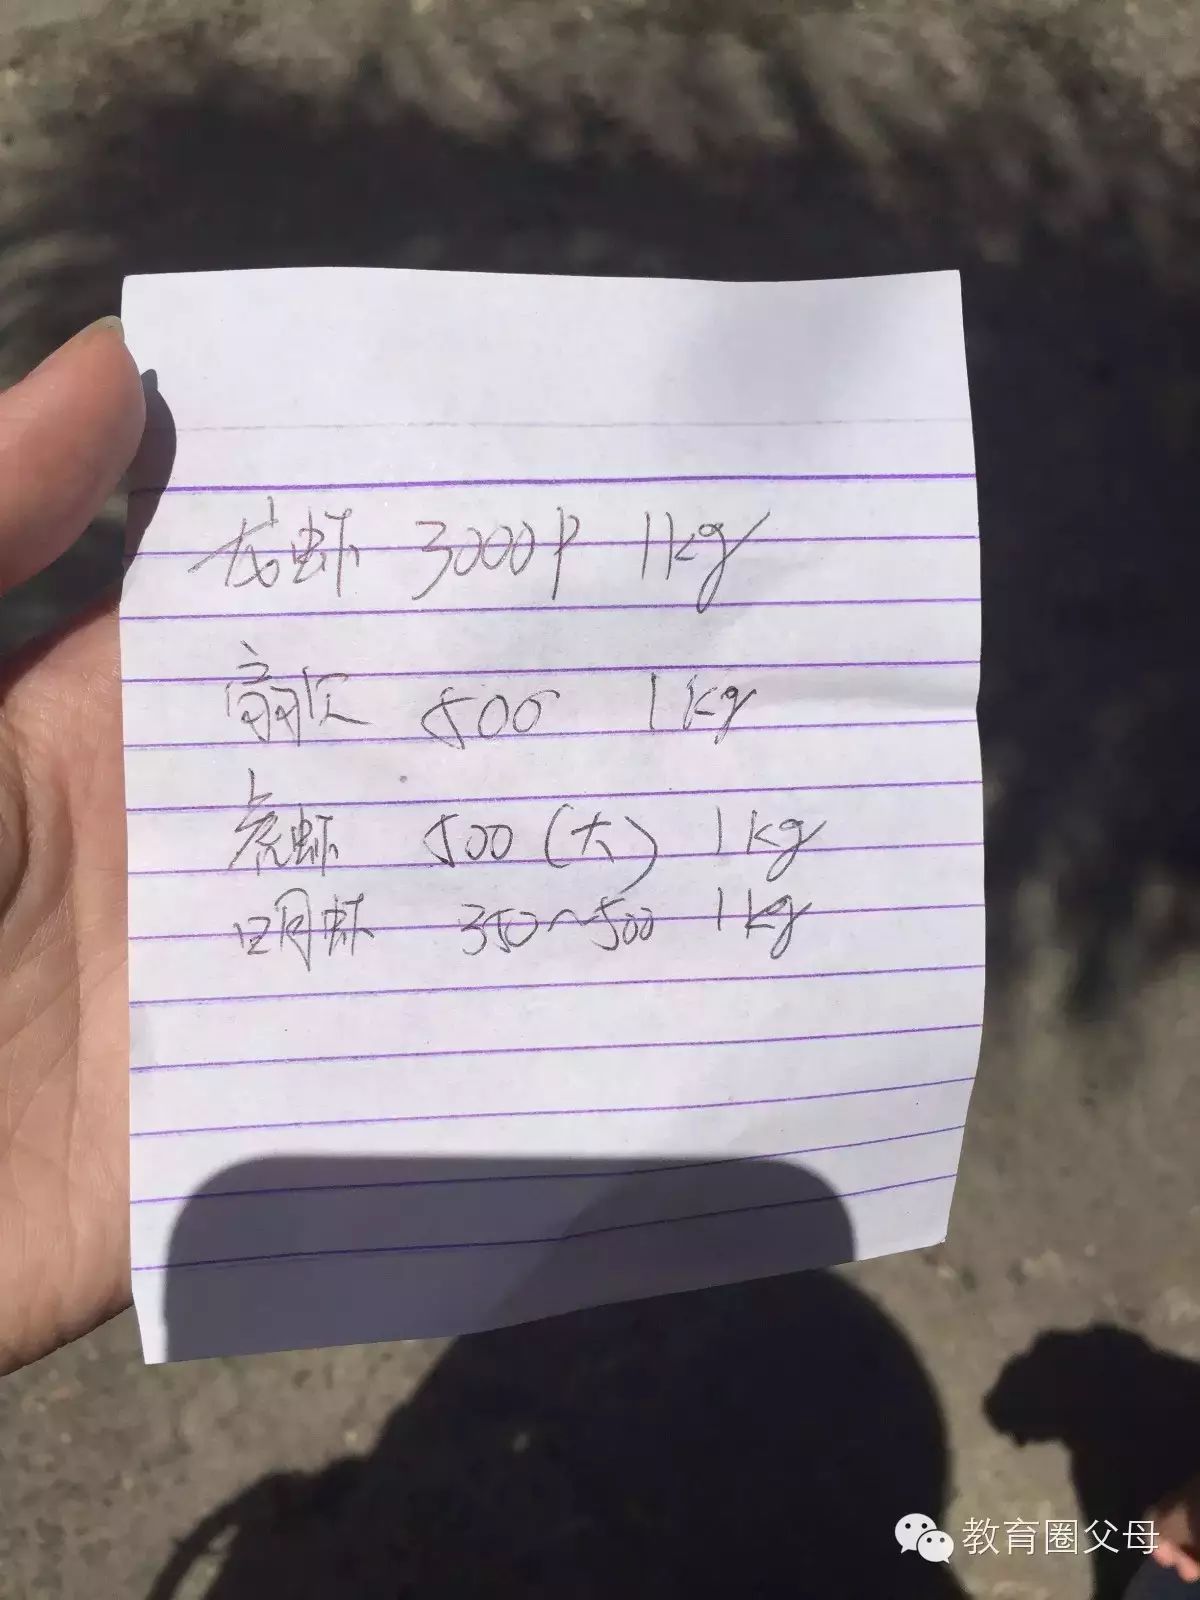 龙虾 3000P 1kg
500 1kg
虎虾 500(大) 1kg
明虾 350~500 1kg
教育圈父母